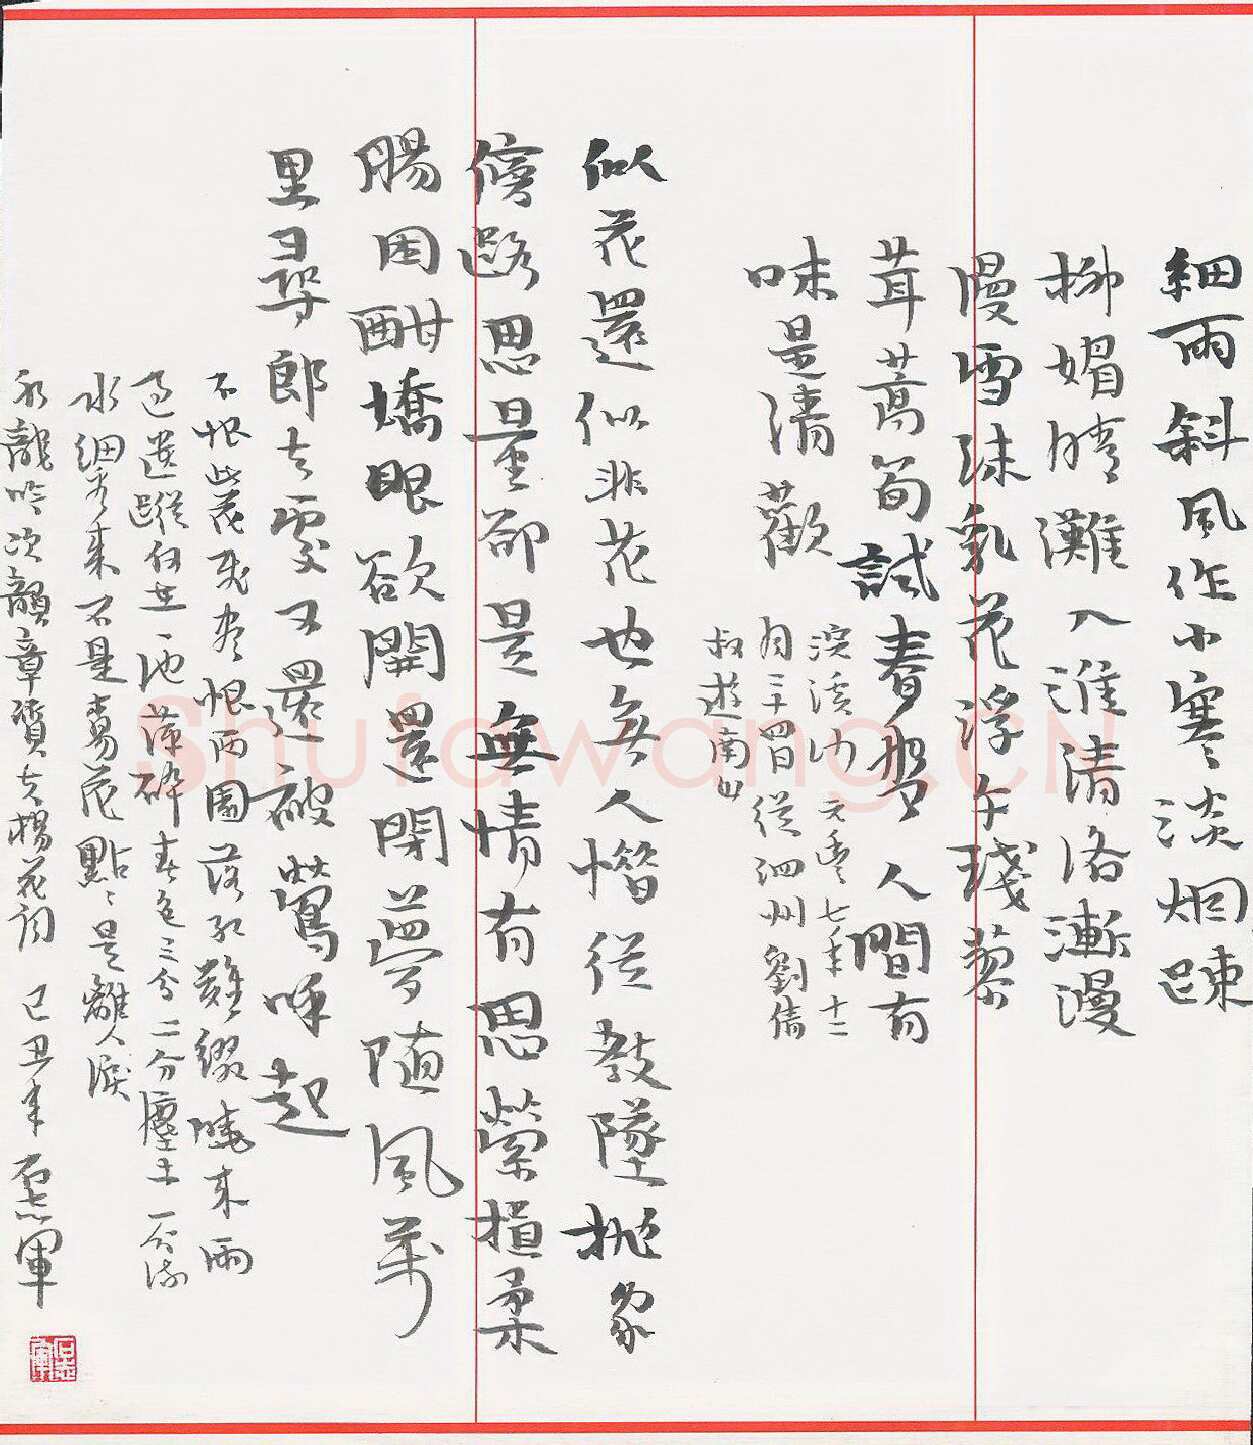 細雨斜風作小寒淡烟疎
柳媚晴灘入淮清洛漸漫
漫雪沫乳花浮午琖蓼
茸蒿筍試春盤人間有
味是清歡
浣溪沙 元豐七年十二
月二十四日從泗州劉倩
叔遊南山
似花還似非花也無人惜從教墜抛家
傍路思量卻是無情有思縈損柔
腸困酣嬌眼欲開還閉夢随風萬
里尋郎去處又還被鶯呼起
不恨此花飛盡恨西園落紅難綴曉來雨
過遺蹤何在一池萍碎春色三分二分塵土一分流
水細看來不是楊花點點是離人淚
水龍吟次韻章質夫楊花詞 己丑年 石志軍
Shufawang.CN